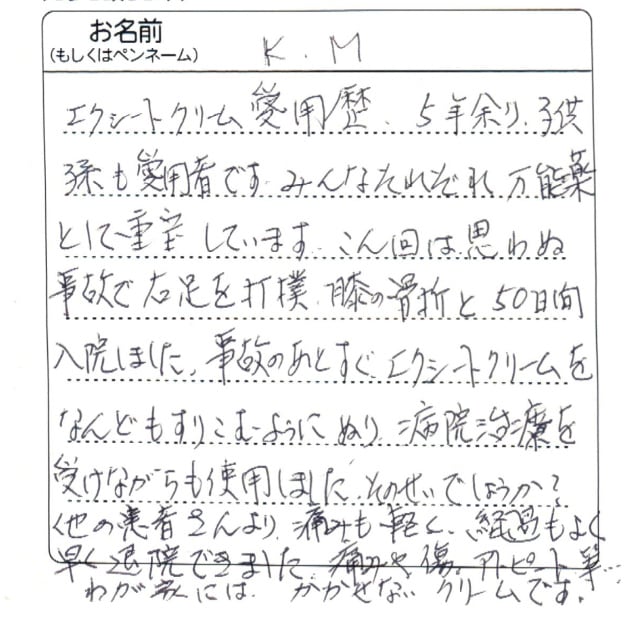 お名前
(もしくはペンネーム)
K.M
エクシートクリーム愛用歴、5年余り、子供
孫も愛用者です。みんなそれぞれ万能薬
として重宝しています。こん回は思わぬ
事故で右足を打撲、膝の骨折と50日間
入院しました。事故のあとすぐエクシートクリームを
なんどもすりこむようにぬり、病院治療を
受けながらも使用しました。そのせいでしょうか?
他の患者さんより、痛みも軽く、経過もよく
早く退院できました。痛みや傷、アトピー等…
わが家には、かかせないクリームです。